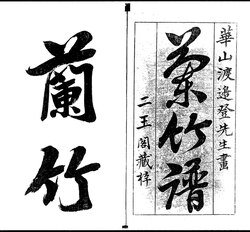 華山渡邉登先生畫
蘭竹譜
二王閣藏梓
蘭竹